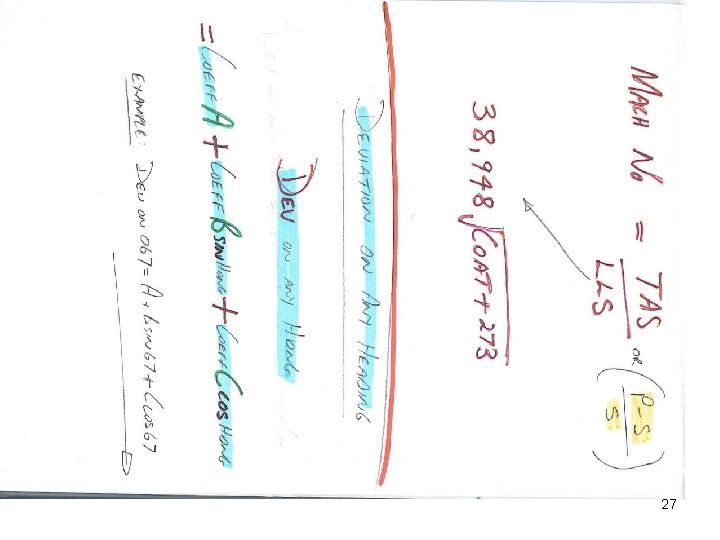 MACH No = TAS/LLS OR (P-S/S)
38,948 √COAT+273
DEVIATION ON ANY HEADING
DEV ON ANY HDNG
= COEFF A + COEFF B SIN HDNG + COEFF C COS HDNG
EXAMPLE: DEV ON 067 = A + B SIN 67 + C COS 67
27